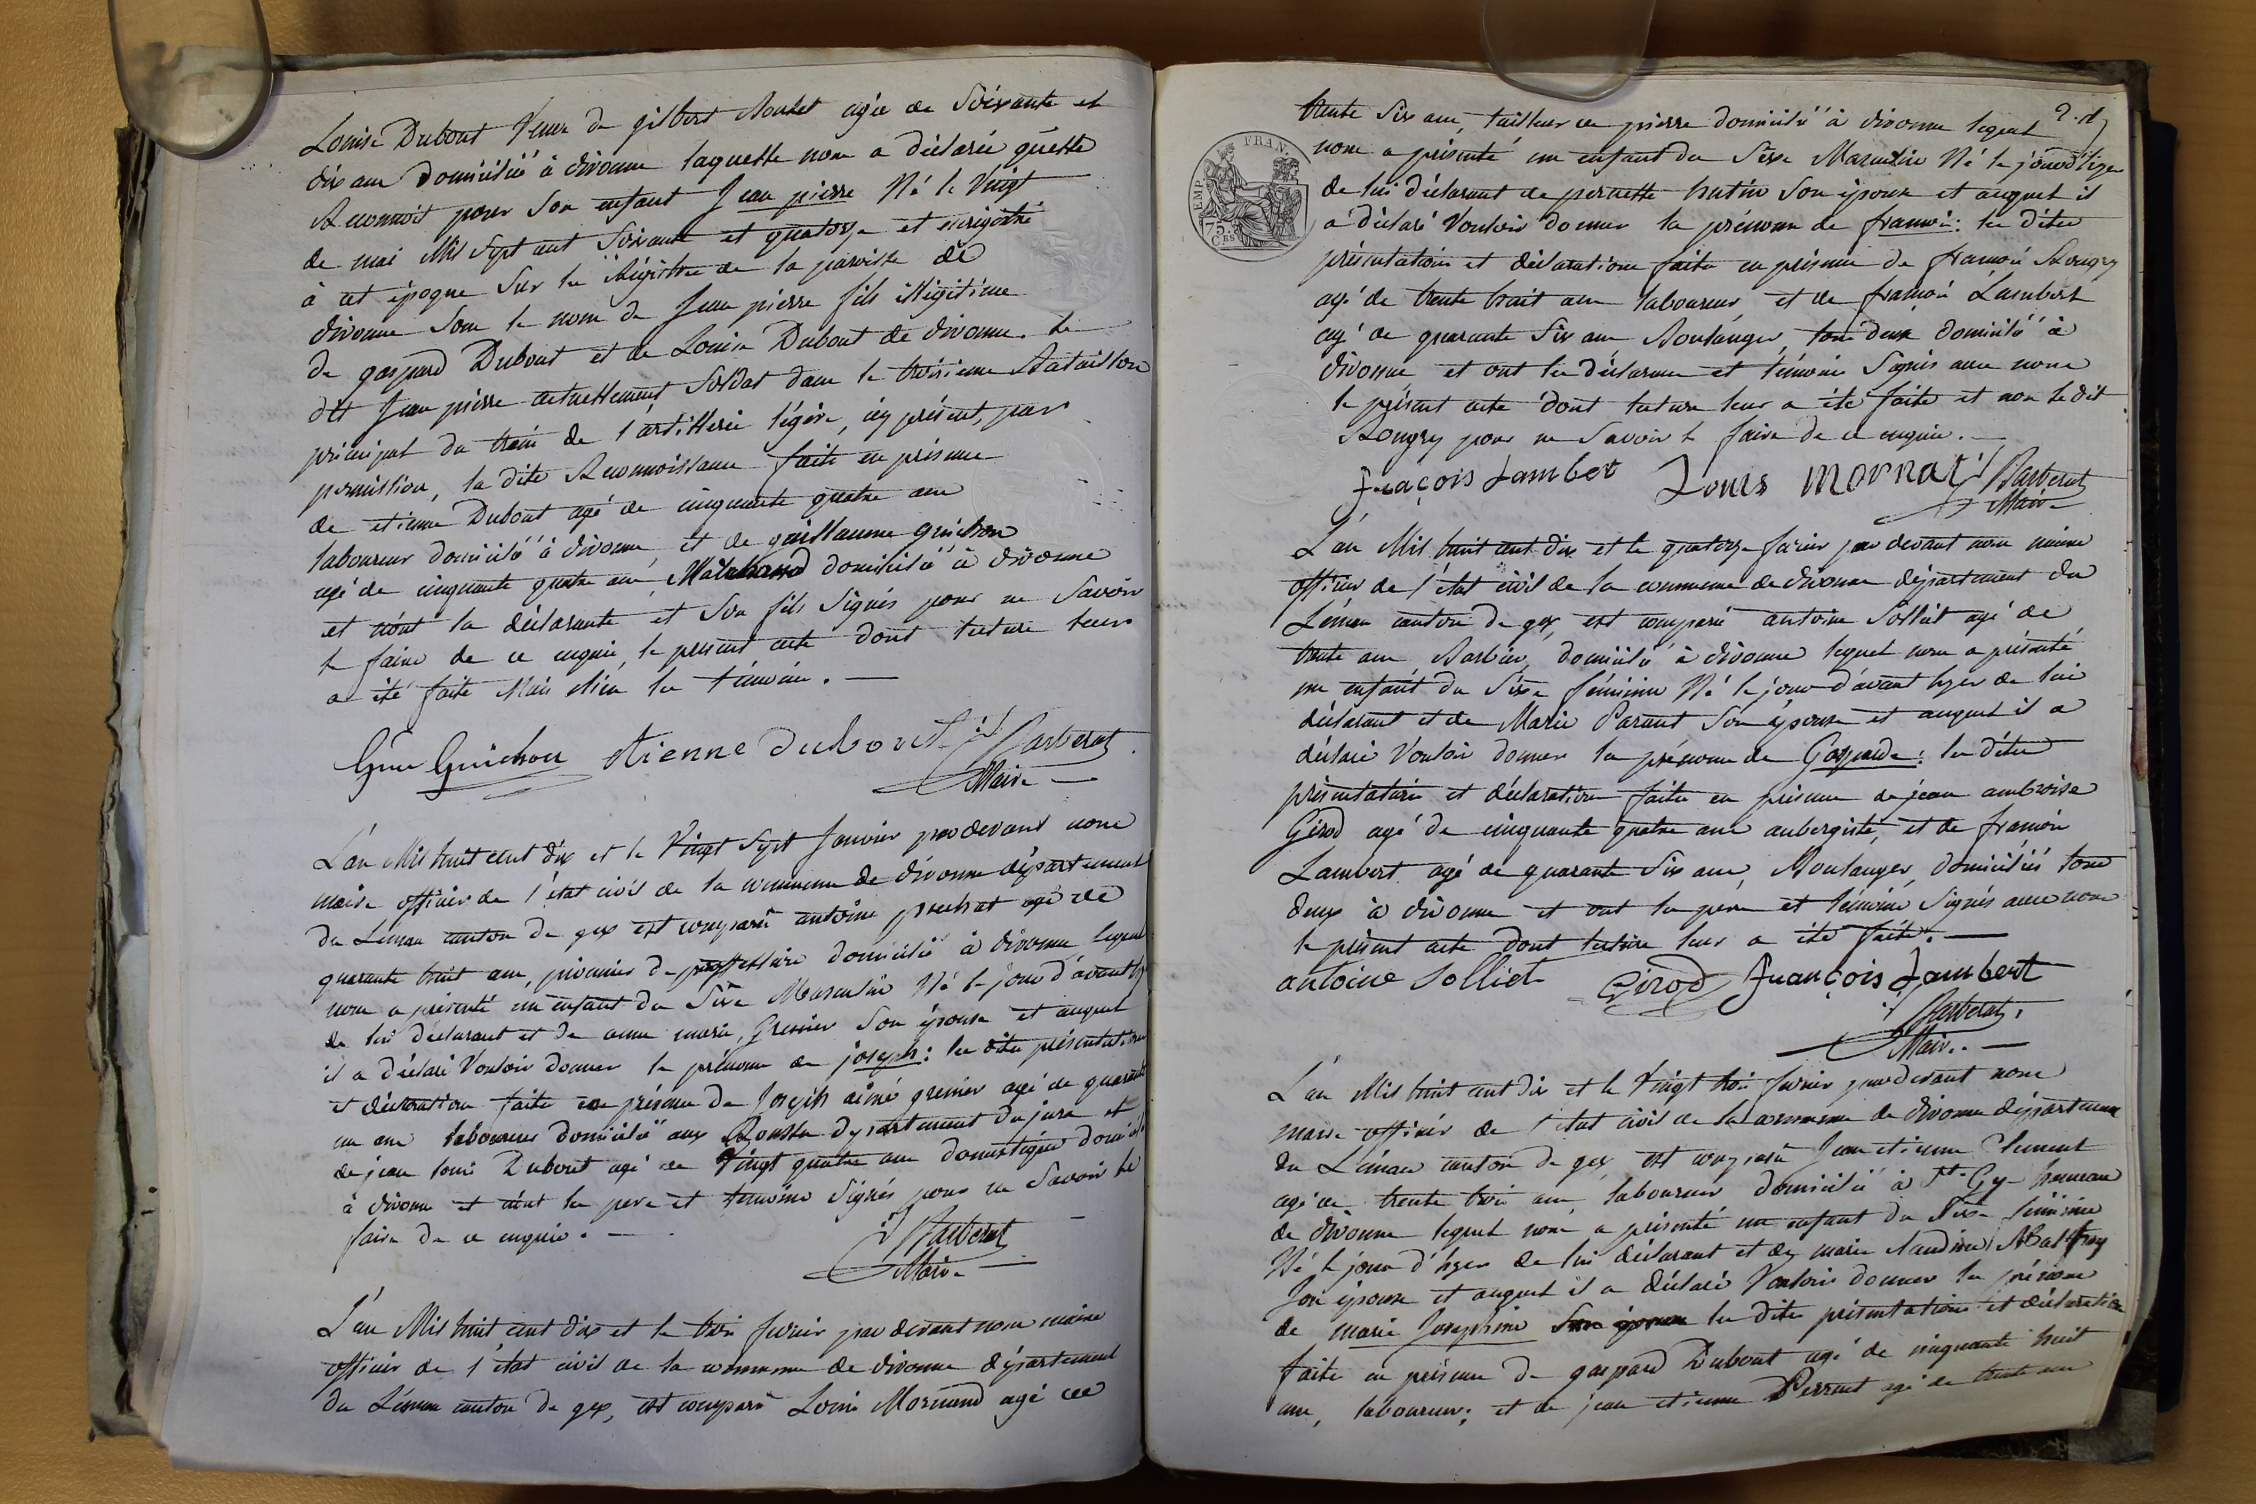 Louise Dubout Veuve de gilbert Roulet agée de Soixante et
dix ans domiciliée à divonne laquelle nous a déclarée qu'elle
Reconnoit pour son enfant Jean pierre Né le Vingt
de mai Mil Sept cent Soixante et quatorze et enrigistré
à cet époque Sur le Régistre de la paroisse de
divonne Sous le nom de Jean pierre fils illégitime
de gaspard Dubout et de Louise Dubout de divonne. le
dit Jean pierre actuellement Soldat dans le troisieme Bataillon
principal du train de l'artillerie légère, icy présent, par
permission, la dite Reconnoissance faite en présence
de etienne Dubout agé de cinquante quatre ans
laboureur domicilié à divonne et de guillaume guichon
agé de cinquante quatre ans, Marchand domicilié à divonne
et n'ont la déclarante et Son fils Signés pour ne Savoir
le faire de ce enquis, le présent acte dont lecture leur
a été faite Mais bien les témoins.
Gme Guichon etienne dubout Barberat
Maire
L'an Mil huit cent dix et le Vingt Sept Janvier pardevant nous
maire officier de l'état civil de la commune de divonne département
du Léman canton de gex est comparu antoine prechat agé de
quarante huit ans, pionnier de proffession domicilié à divonne lequel
nous a présenté un enfant du Sèxe Masculin Né le jour d'avant
de lui déclarant et de anne marie Grenier Son épouse et auquel
il a déclaré Vouloir donner le prénom de joseph: les dites présentation
et déclaration faites en présence de Joseph aimé grenier agé de quarante
un ans laboureur domicilié aux Rousses département du jura et
de jean louis Dubout agé de Vingt quatre ans domestique domicilié
à divonne et n'ont les pere et temoins Signés pour ne Savoir le
faire de ce enquis.
Barberat
Maire
L'an Mil huit cent dix et le trois fevrier par devant nous maire
officier de l'état civil de la commune de divonne département
du Léman canton de gex, est comparu Louis Mornand agé de
trente Six ans, tailleur de pierre domicilié à divonne lequel
nous a présenté un enfant du Sèxe Masculin Né le jour d'hyer
de lui déclarant de pernette hutin Son épouse et auquel il
a déclaré Vouloir donner le prénom de francois: les dites
présentation et déclaration faites en présence de francois Rougry
agé de trente huit ans laboureur et de francois Lambert
agé de quarante Six ans Boulanger, tous deux domicilié à
divonne et ont les déclarant et témoins Signés avec nous
le présent acte dont lecture leur a été faite et non le dit
Rougry pour ne Savoir le faire de ce enquis.
françois Lambert Louis mornat Barberat
Maire
L'an Mil huit cent dix et le quatorze fevrier par devant nous maire
officier de l'état civil de la commune de divonne département du
Léman canton de gex, est comparu antoine Solliet agé de
trente ans, Barbier, domicilié à divonne lequel nous a présenté
un enfant du Sèxe féminin Né le jour d'avant hyer de lui
déclarant et de Marie Parant Son épouse et auquel il a
déclaré Vouloir donner le prénom de Gasparde: les dites
présentation et déclaration faites en présence de jean ambroise
Girod agé de cinquante quatre ans aubergiste, et de francois
Lambert agé de quarante Six ans, Boulanger, domiciliés tous
deux à divonne et ont les pere et témoins Signés avec nous
le présent acte dont lecture leur a été faite.
antoine Solliet Girod françois Lambert
Barberat
Maire
L'an Mil huit cent dix et le Vingt trois fevrier pardevant nous
maire officier de l'état civil de la commune de divonne département
du Léman canton de gex est comparu Jean etienne Clement
agé de trente trois ans, laboureur domicilié à St. Gy hameau
de divonne lequel nous a présenté un enfant du Sèxe féminin
Né le jour d'hyer de lui déclarant et de marie claudine
Son épouse et auquel il a déclaré Vouloir donner le prénom
de marie Josephine les dites présentation et déclaration
faites en présence de gaspard Dubout agé de cinquante huit
ans, laboureur; et de jean etienne Perrnet agé de trente ans
TIMP. FRAN.
75.
CES